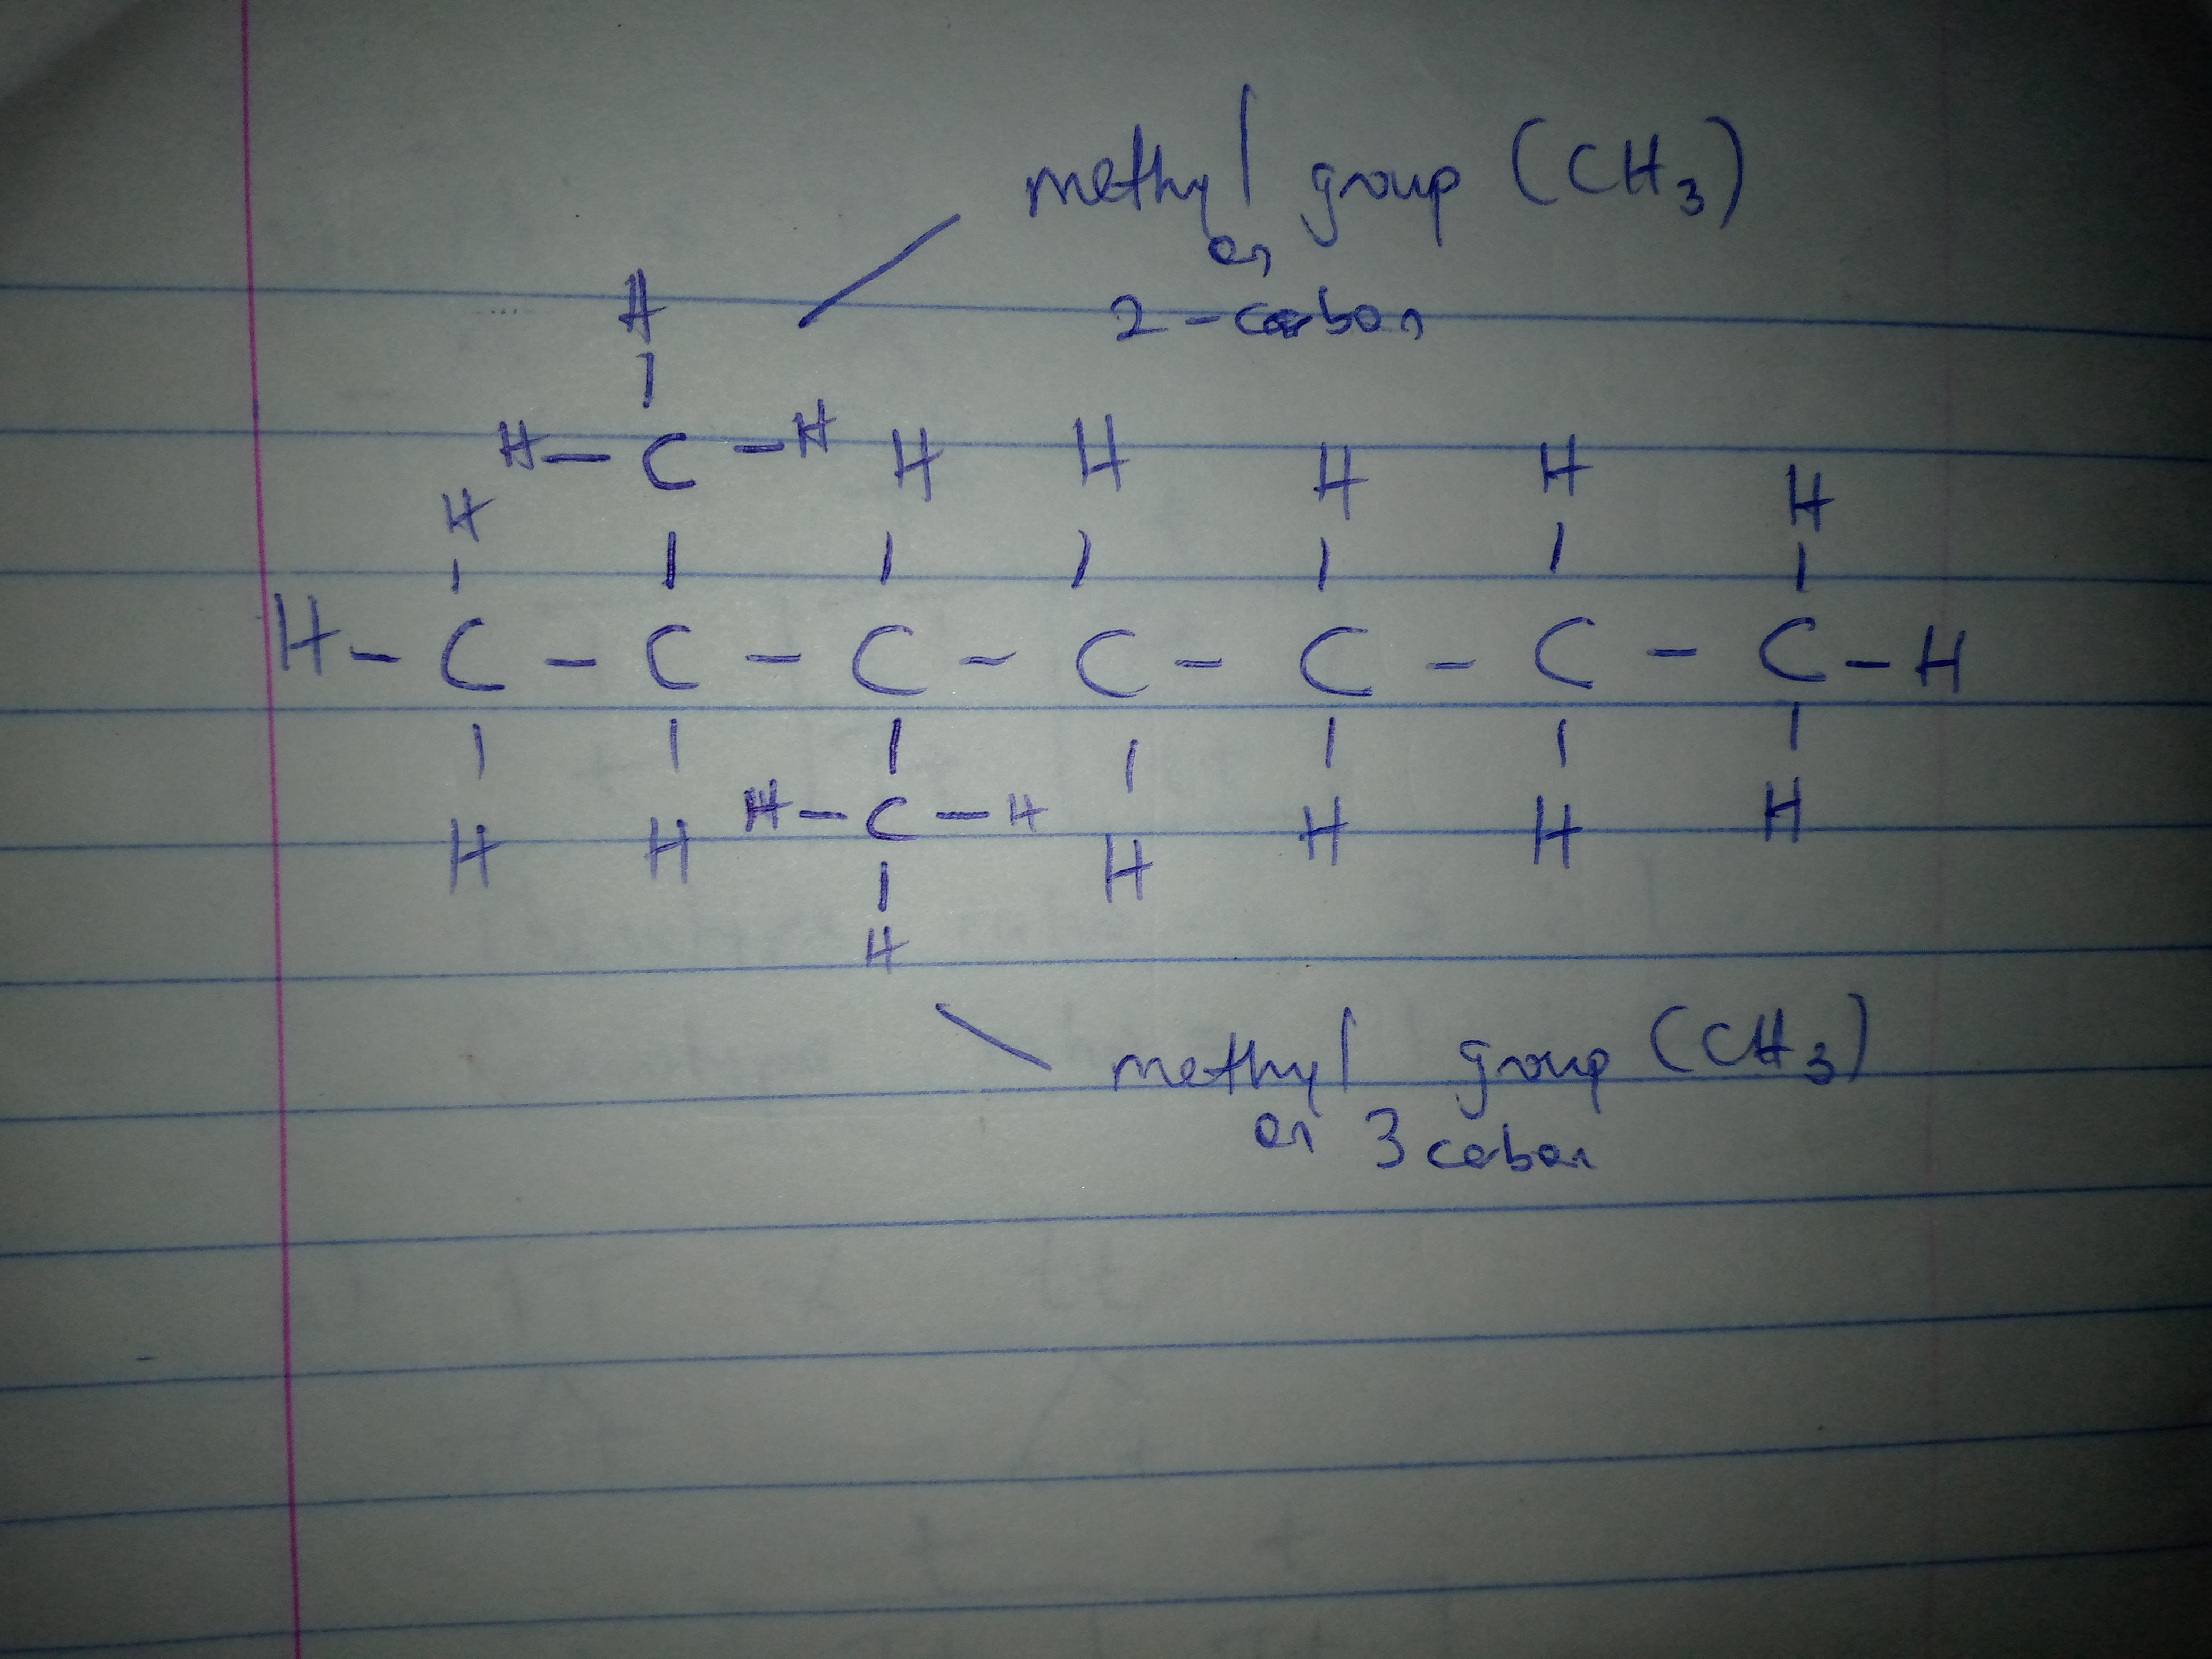 methyl group (CH3)
on
2 - carbon
H
H - C - H H H H H H
H
H - C - C - C - C - C - C - C - H
H H H - C - H H H H H
H
methyl group (CH3)
on 3 carbon